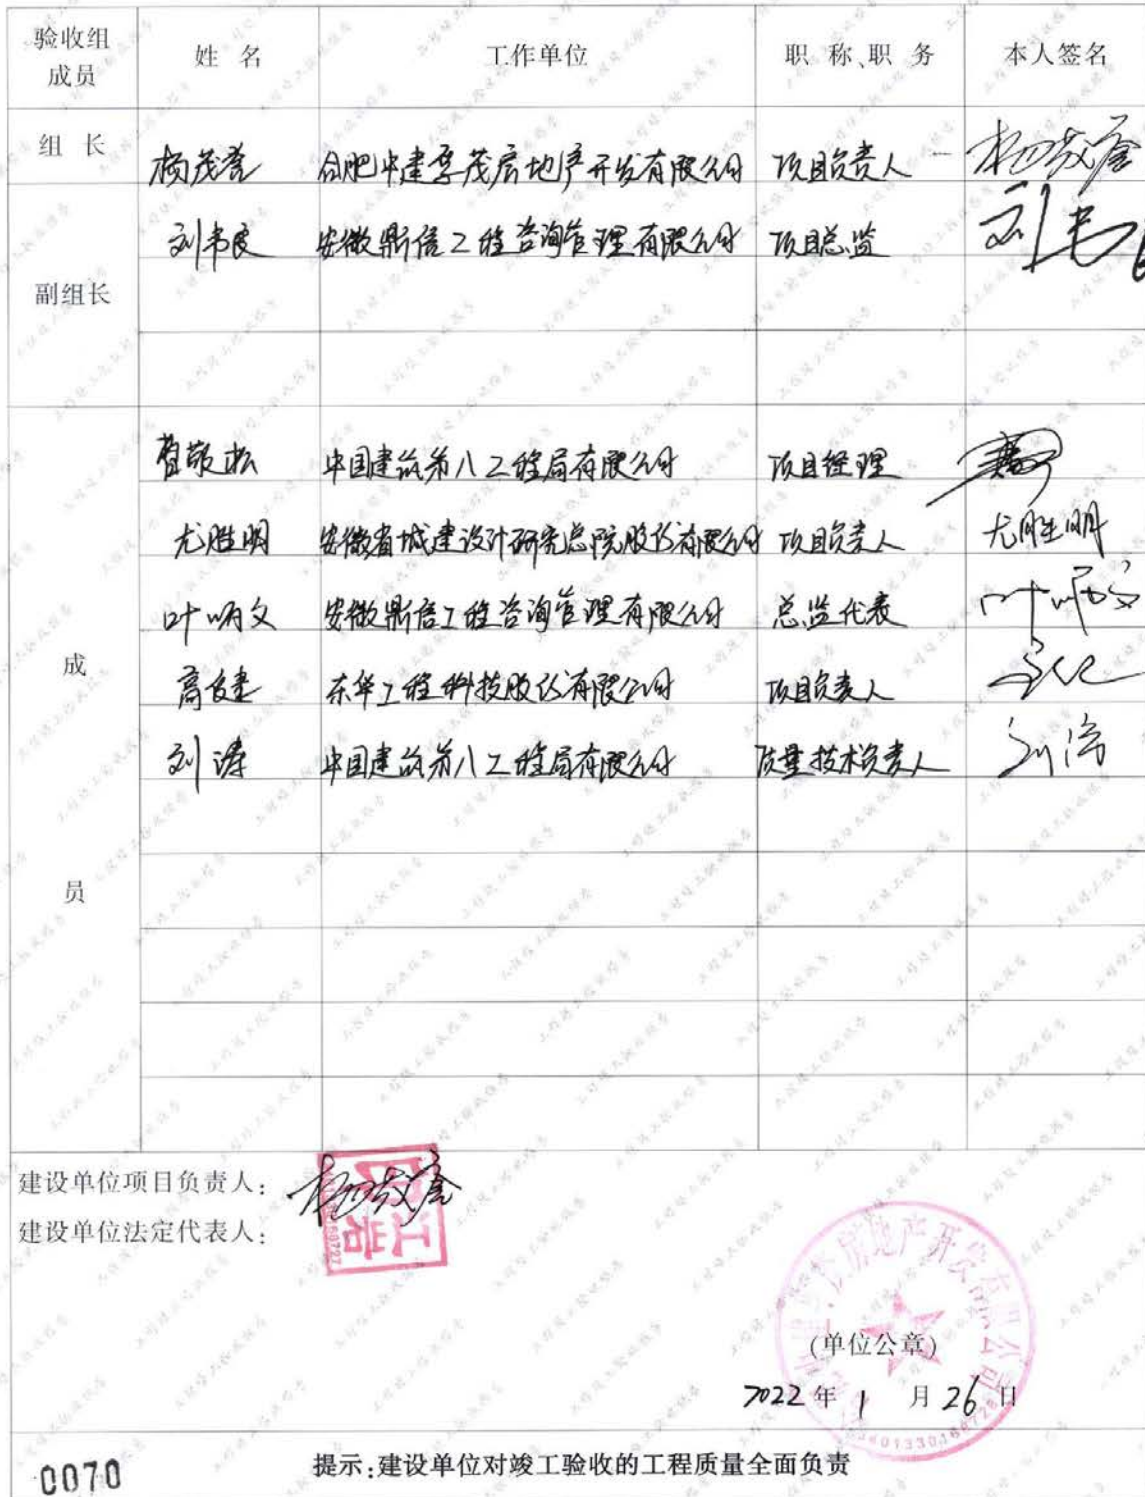 验收组成员 姓 名 工作单位 职 称、职 务 本人签名
组 长 杨茂 合肥中建孚茂房地产开发有限公司 项目负责人
刘韦良 安徽鼎信工程咨询管理有限公司 项目总监 刘韦
副组长
敬松 中国建筑第八工程局有限公司 项目经理
尤胜明 安徽省城建设计研究总院股份有限公司 项目负责人 尤胜明
叶炳文 安徽鼎信工程咨询管理有限公司 总监代表
成 高建 东华工程科技股份有限公司 项目负责人
刘涛 中国建筑第八工程局有限公司 质量技术负责人 刘涛
员
建设单位项目负责人:
建设单位法定代表人:
江岩印
房地产开发有限公司
(单位公章)
2022 年 1 月 26 日
0070 提示:建设单位对竣工验收的工程质量全面负责